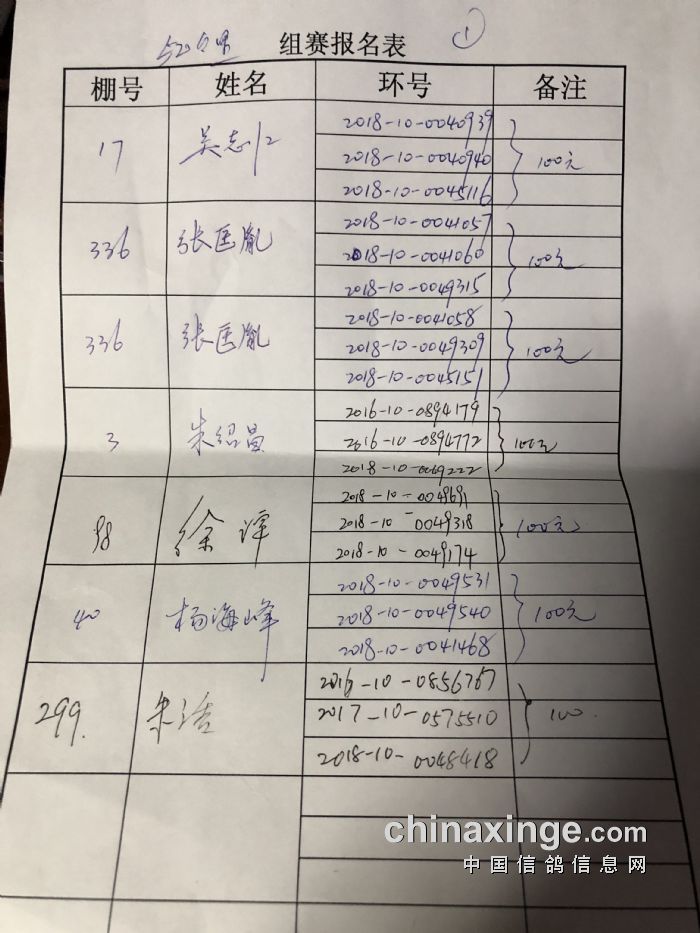 组赛报名表 ①
棚号 姓名 环号 备注
17 吴志仁 2018-10-0040939 100元
2018-10-0040940
2018-10-0045116
336 张匡胤 2018-10-0041057 100元
2018-10-0041060
2018-10-0049315
336 张匡胤 2018-10-0041058 100元
2018-10-0049309
2018-10-0045151
3 朱绍昌 2016-10-0894179 100元
2016-10-0894772
2018-10-0069222
98 徐 2018-10-0049691 100元
2018-10-0049318
2018-10-0049174
40 杨海峰 2018-10-0049531 100元
2018-10-0049540
2018-10-0041468
299. 朱 2016-10-0856767 100.
2017-10-0575510
2018-10-0048418
chinaxinge.com
中国信鸽信息网